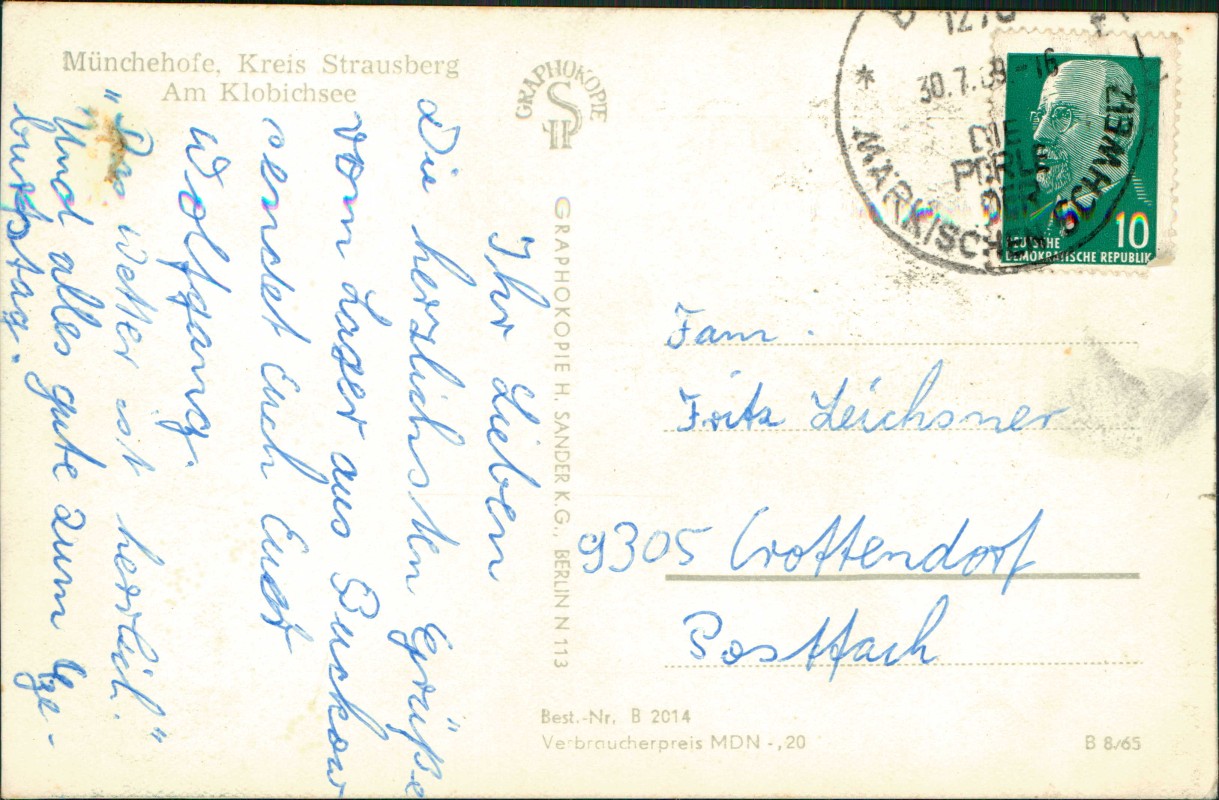 Münchehofe, Kreis Strausberg
Am Klobichsee
Ihr Lieben
Die herzlichsten Grüße
vom Lager aus Buckow
sendet Euch Euer
Wolfgang.
"Das Wetter ist herrlich."
Und alles gute zum Ge-
burtstag.
GRAPHOKOPIE
GRAPHOKOPIE H. SANDER K.G., BERLIN N 113
30.7.69-16
DIE
PERLE
DER
MÄRKISCHEN SCHWEIZ
10
DEUTSCHE
DEMOKRATISCHE REPUBLIK
Fam.
Fritz Leichsner
9305 Crottendorf
Postfach
Best.-Nr. B 2014
Verbraucherpreis MDN -,20
B 8/65